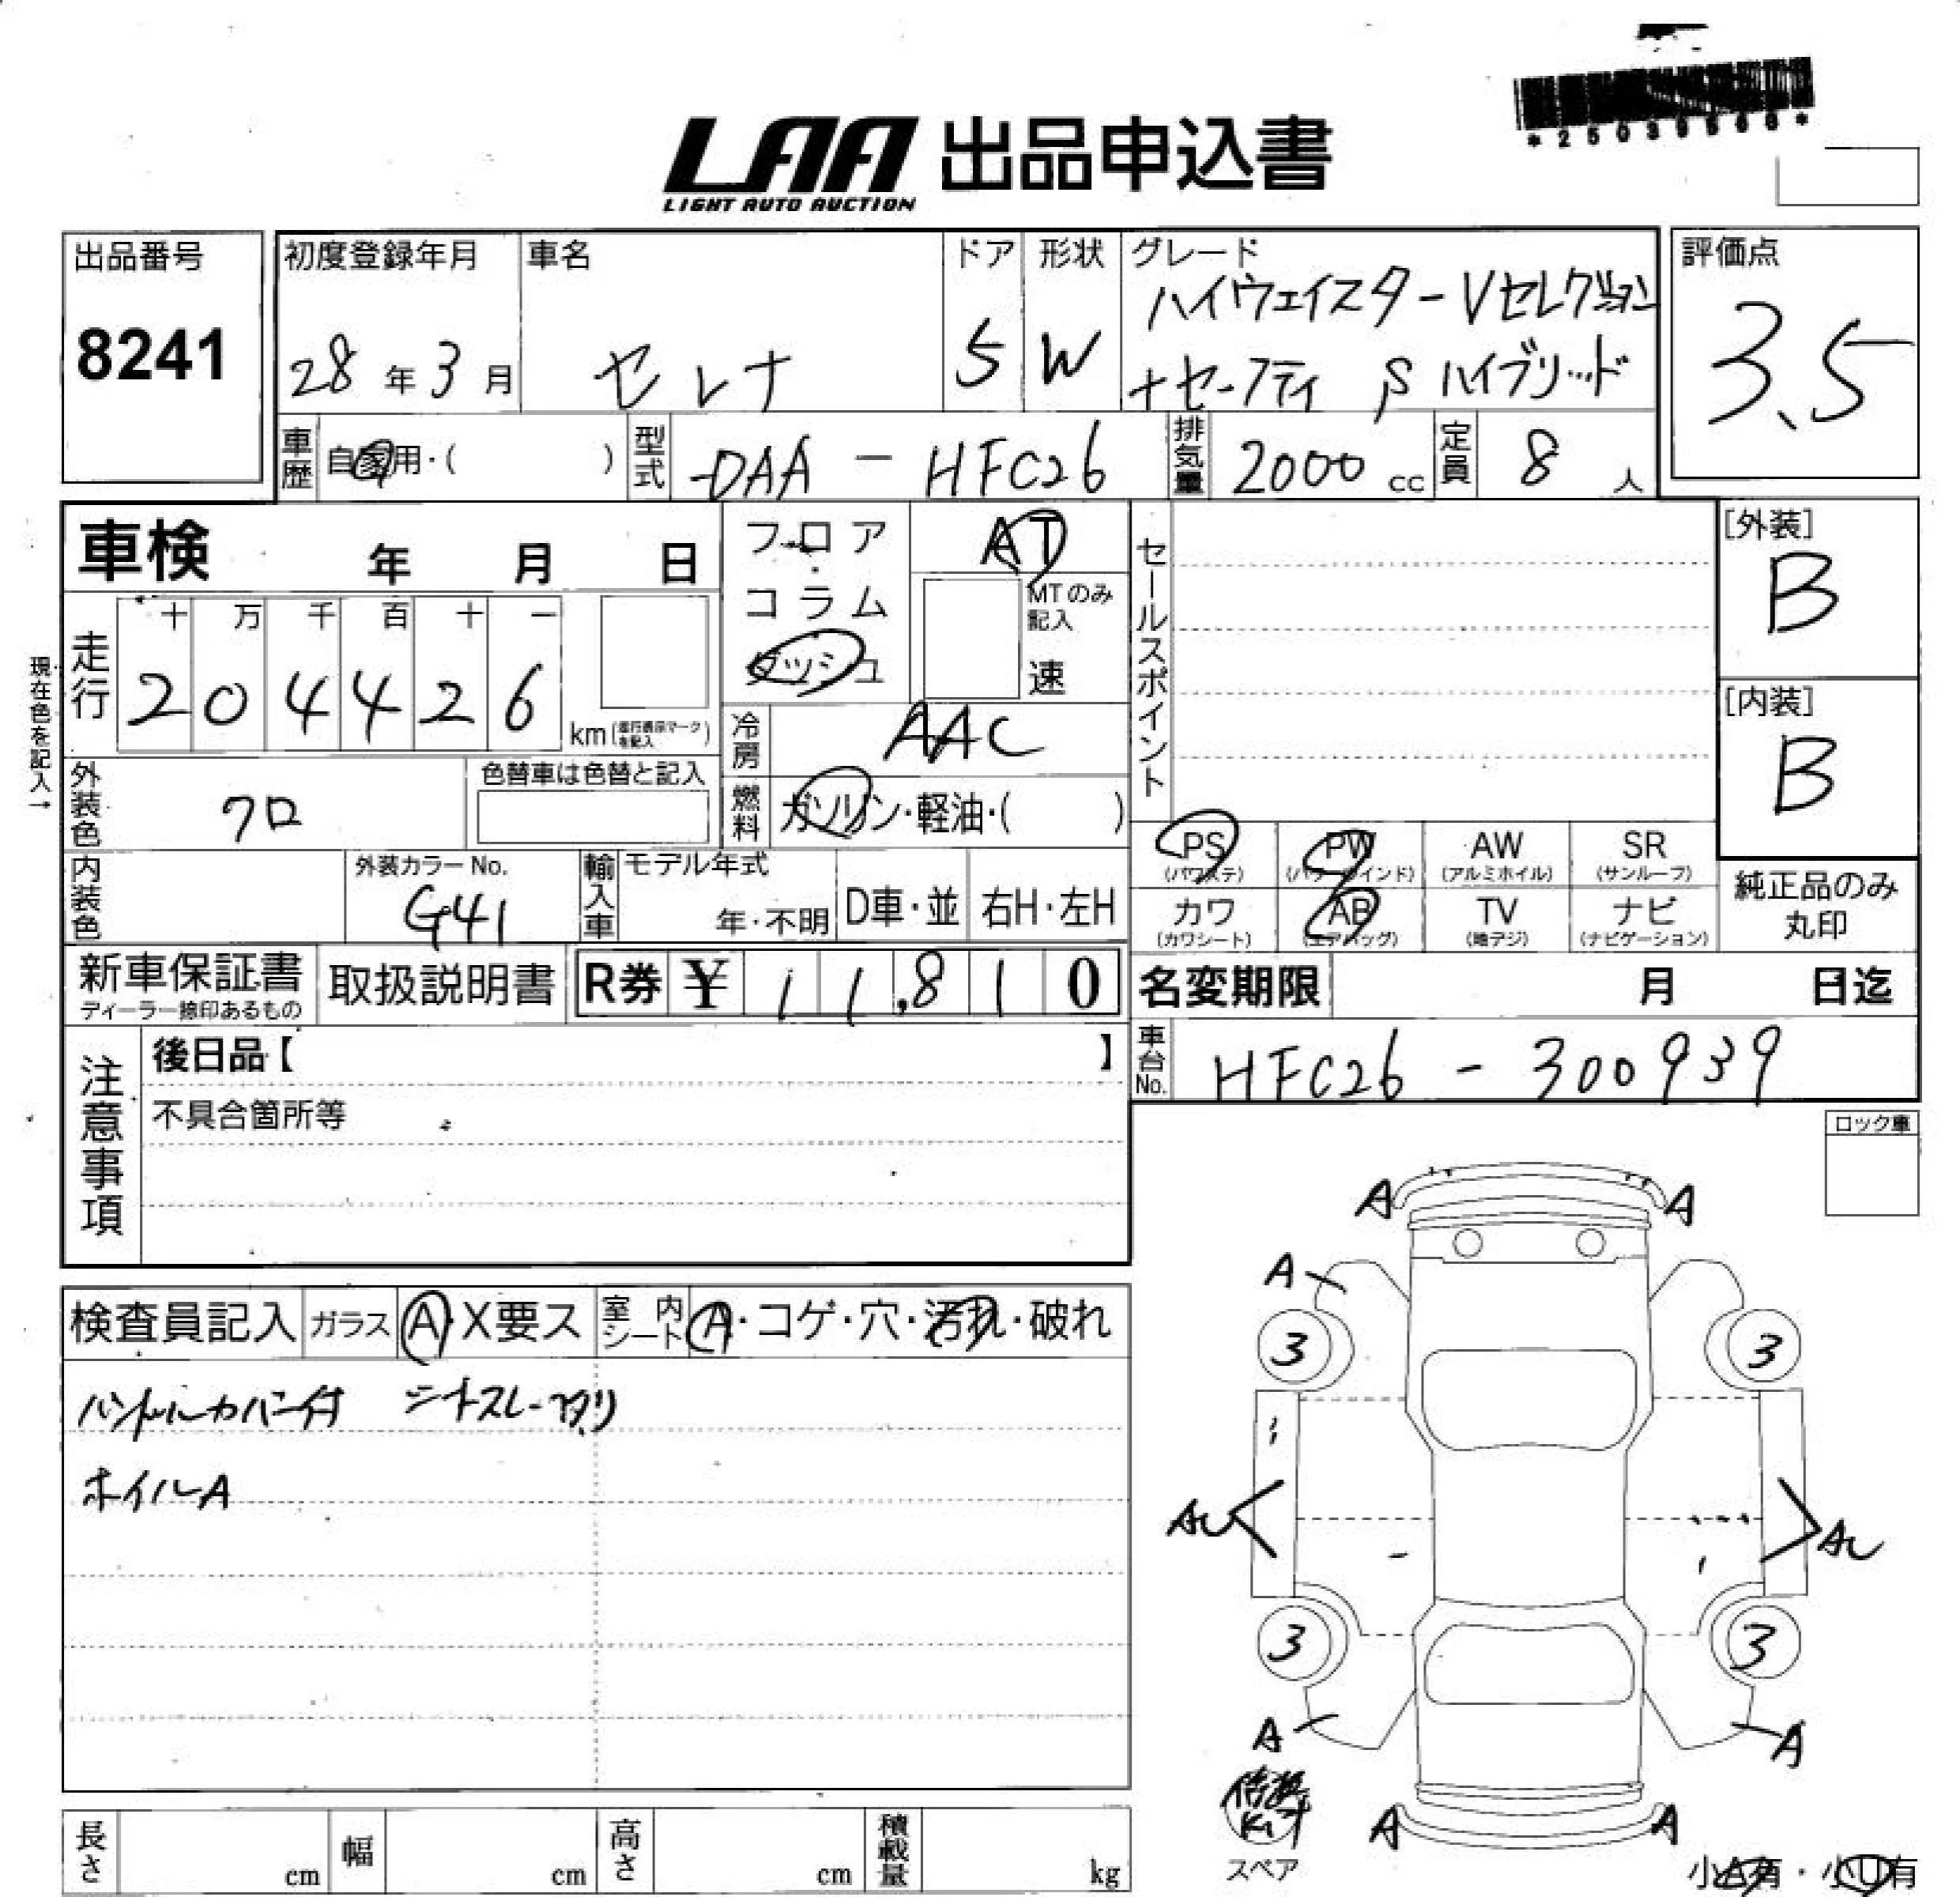 LAA 出品申込書
LIGHT AUTO AUCTION
出品番号
8241
初度登録年月
28年3月
車名
セレナ
ドア
5
形状
W
グレード
ハイウェイスターVセレクション
+セーフティ Sハイブリッド
評価点
3.5
車歴
自家用・( )
型式
DAA-HFC26
排気量
2000cc
定員
8人
車検 年 月 日
走行
十 万 千 百 十 一
2 0 4 4 2 6
km(走行表示マークを記入)
現在色を記入→
フロア
コラム
ダッシュ
AT
MTのみ記入
速
冷房
AAC
燃料
ガソリン・軽油・( )
セールスポイント
[外装]
B
[内装]
B
外装色
クロ
色替車は色替と記入
内装色
外装カラーNo.
G41
輸入車
モデル年式
年・不明
D車・並
右H・左H
PS
(パワステ)
PW
(パワーウインド)
AW
(アルミホイル)
SR
(サンルーフ)
カワ
(カワシート)
AB
(エアバッグ)
TV
(地デジ)
ナビ
(ナビゲーション)
純正品のみ
丸印
新車保証書
ディーラー捺印あるもの
取扱説明書
R券 ¥ 11,810
名変期限 月 日迄
車台No.
HFC26-300939
注意事項
後日品【 】
不具合箇所等
ロック車
検査員記入
ガラス
A・X要ス
室内シート
A・コゲ・穴・汚れ・破れ
ハンドルカバー付 シートスレ
ホイルA
A A
A
3 3
AU AU
3 3
A A
A A
スペア
小A有・小U有
長さ cm
幅 cm
高さ cm
積載量 kg